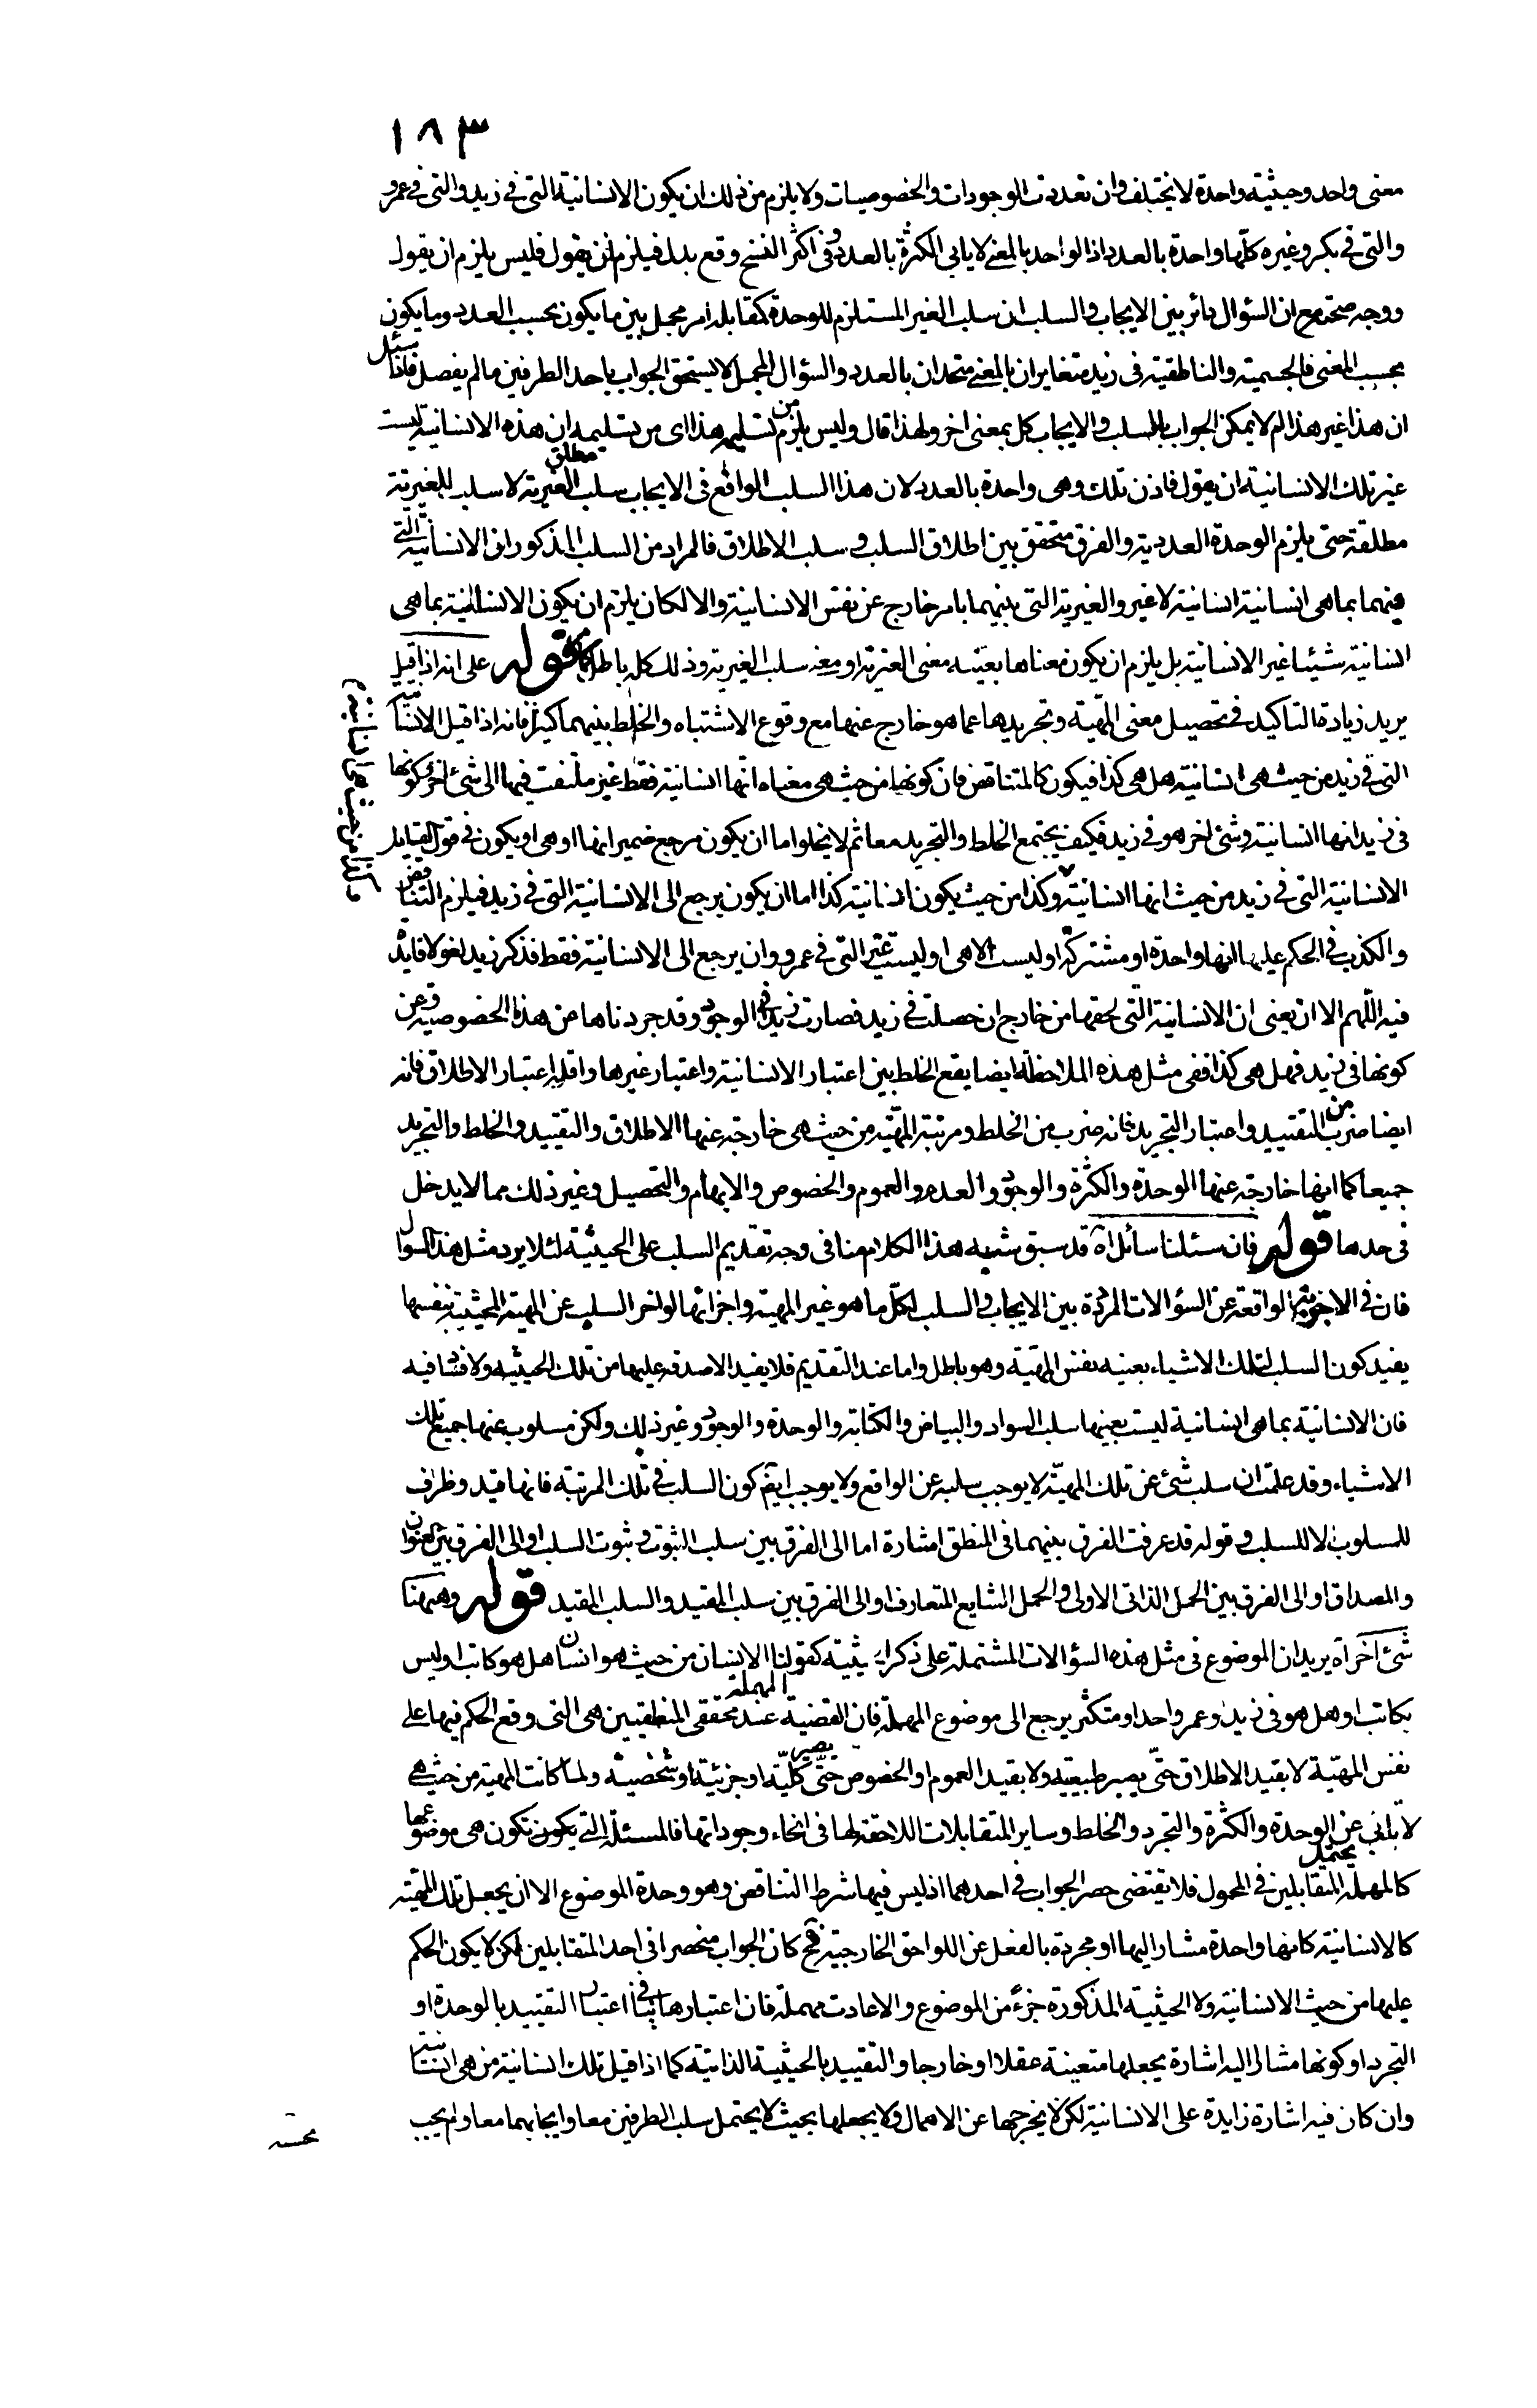 ١٨٣
معنى واحد وحيثية واحدة لا يختلف وان تعددت الوجودات والخصوصيات ولا يلزم من ذلك ان يكون الانسانية التى فى زيد والتى فى عمرو
والتى فى بكر وغيره كلّها واحدة بالعدد اذ الواحد بالمعنى لا يابى الكثرة بالعدد وفى اكثر النسخ وقع بدل فيلزم ان يقول فليس يلزم ان يقول
ووجه صحته مع ان السؤال دائر بين الايجاب والسلب ان سلب الغير المستلزم للوحدة كمقابله امر مجمل بين ما يكون بحسب العدد وما يكون
بحسب المعنى فالجسمية والناطقية فى زيد متغايران بالمعنى متحدان بالعدد والسؤال المجمل لا يستحق الجواب باحد الطرفين ما لم يفصل فاذا سئل
ان هذا غير هذا ام لا يمكن الجواب بالسلب والايجاب كل بمعنى اخر ولهذا قال وليس يلزم من تسليمه هذا اى من تسليمه ان هذه الانسانية ليست
غير تلك الانسانية ان يقول فاذن تلك وهى واحدة بالعدد لان هذا السلب الواقع فى الايجاب سلب مطلق الغيرية لا سلب للغيرية
مطلقة حتى يلزم الوحدة العددية والفرق متحقق بين اطلاق السلب و سلب الاطلاق فالمراد من السلب المذكور ان الانسانية التى
فيهما بما هى انسانية انسانية لا غير والغيرية التى بينهما بامر خارج عن نفس الانسانية والا لكان يلزم ان يكون الانسانية بما هى
انسانية شيئا غير الانسانية بل يلزم ان يكون معناها بعينه معنى الغيرية او معنى سلب الغيرية وذلك كله باطل قوله على انه اذا قيل
يريد زيادة التاكيد فى تحصيل معنى المهيّة وتجريدها عما هو خارج عنها مع وقوع الاشتباه والخلط بينهما كثيرا فانه اذا قيل الانسانية
التى فى زيد من حيث هى انسانية هل هى كذا فيكون كالمتناقض فان كونها من حيث هى معناه انّها انسانية فقط غير ملتفت فيها الى شئ اخر وكونها
فى زيد انها انسانية وشئ اخر هو فى زيد فكيف يجتمع الخلط والتجريد معا ثم لا يخلوا ما ان يكون مرجع ضمير انها او هى او يكون فى قول القايل
الانسانية التى فى زيد من حيث انها انسانية وكذا من حيث يكون انسانية كذا اما ان يكون يرجع الى الانسانية التى فى زيد فيلزم التناقض
والكذب فى الحكم عليها انها واحدة او مشتركة او ليست الا هى او ليست غير التى فى عمرو وان يرجع الى الانسانية فقط فذكر زيد لغو لا فايدة
فيه اللّهم الا ان يعنى ان الانسانية التى لحقها من خارج ان حصلت فى زيد فصارت زيدا فى الوجود وقد جردناها من هذه الخصوصية وعن
كونها فى زيد فهل هى كذا ففى مثل هذه الملاحظة ايضا يقع الخلط بين اعتبار الانسانية واعتبار غيرها واقله اعتبار الاطلاق فانه
ايضا ضرب من التقييد واعتبار التجريد فانه ضرب من الخلط ومرتبة المهيّة من حيث هى خارجة عنها الاطلاق والتقييد والخلط والتجريد
جميعا كما انها خارجة عنها الوحدة والكثرة والوجود والعدم والعموم والخصوص والابهام والتحصيل وغير ذلك مما لا يدخل
فى حدها قوله فان سئلنا سائل اه قد سبق شبيه هذا الكلام منا فى وجه تقديم السلب على الحيثية لئلا يرد مثل هذا السؤال
فان فى الاجوبة الواقعة عن السؤالات المرددة بين الايجاب والسلب لكلّ ما هو غير المهية واجزائها لو اخر السلب عن المهية المحيثية بنفسها
يفيد كون السلب لتلك الاشياء بعينه نفس المهيّة وهو باطل واما عند التقديم فلا يفيد الا صدقه عليها من تلك الحيثية ولا فساد فيه
فان الانسانية بما هى انسانية ليست بعينها سلب السواد والبياض والكتابة والوحدة والوجود وغير ذلك ولكن مسلوب عنها جميع تلك
الاشياء وقد علمت ان سلب شئ عن تلك المهيّة لا يوجب سلبه عن الواقع ولا يوجب ايضا كون السلب فى تلك المرتبة فانها قيد وظرف
للمسلوب لا للسلب و قوله قد عرفت الفرق بينهما فى المنطق اشارة اما الى الفرق بين سلب الثبوت و ثبوت السلب او الى الفرق بين العنوان
والمصداق او الى الفرق بين الحمل الذاتى الاولى والحمل الشايع المتعارف او الى الفرق بين سلب المقيد والسلب المقيد قوله وهيهنا
شئ اخر اه يريد ان الموضوع فى مثل هذه السؤالات المشتملة على ذكر الحيثية كقولنا الانسان من حيث هو انسان هل هو كاتب او ليس
بكاتب او هل هو فى زيد وعمر واحد او متكثر يرجع الى موضوع المهملة فان القضية المهملة عند محققى المنطقيين هى التى وقع الحكم فيها على
نفس المهيّة لا بقيد الاطلاق حتّى يصير طبيعيه ولا بقيد العموم او الخصوص حتّى يصير كليّة او جزئية او شخصية ولما كانت المهية من حيث هى
لا تابى عن الوحدة والكثرة والتجرد والخلط وساير المتقابلات اللاحقة لها فى انحاء وجوداتها فالمسئلة التى يكون تكون هى موضوعها
كالمهملة يحتمل المتقابلين فى المحمول فلا يقتضى حصر الجواب فى احدهما اذ ليس فيها شرط التناقض وهو وحدة الموضوع الا ان يجعل تلك المهيّة
كالانسانية كانها واحدة مشار اليها او مجردة بالفعل عن اللواحق الخارجية فح كان الجواب منحصرا فى احد المتقابلين لكن لا يكون الحكم
عليها من حيث الانسانية ولا الحيثية المذكورة جزءً من الموضوع والا عادت مهملة فان اعتبارها ينافى اعتبار التقييد بالوحدة او
التجرد او كونها مشارا اليه اشارة يجعلها متعينة عقلا او خارجا والتقييد بالحيثية الذاتية كما اذا قيل تلك انسانية من هى انسانية
وان كان فيه اشارة زايدة على الانسانية لكن لا يخرجها عن الاهمال ولا يجعلها بحيث لا يحتمل سلب الطرفين معا وايجابهما معا ولم يجب